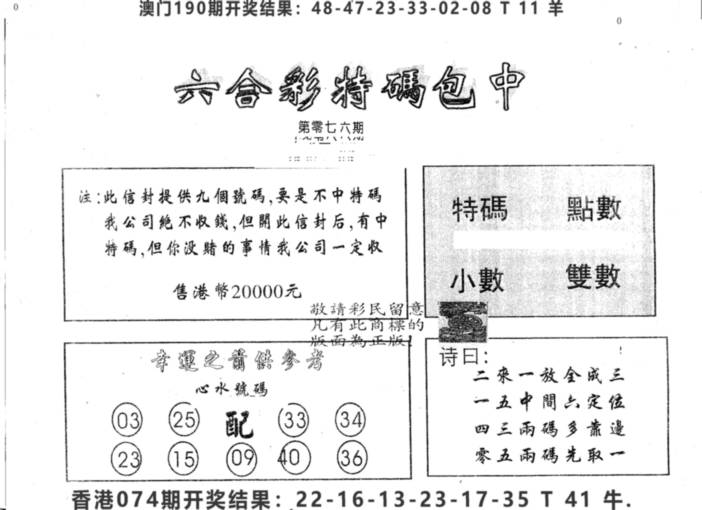 澳门190期开奖结果：48-47-23-33-02-08 T 11 羊
六合彩特碼包中
第零七六期
注:此信封提供九個號碼,要是不中特碼
我公司絶不收錢,但開此信封后,有中
特碼,但你没賭的事情我公司一定收
售港幣20000元
特碼 點數
小數 雙數
敬請彩民留意
凡有此商標的
版面為正版!
幸運之前供參考
心水號碼
03 25 配 33 34
23 15 09 40 36
诗曰:
二來一放全成三
一五中間六定位
四三兩碼多靠邊
零五兩碼先取一
香港074期开奖结果：22-16-13-23-17-35 T 41 牛.